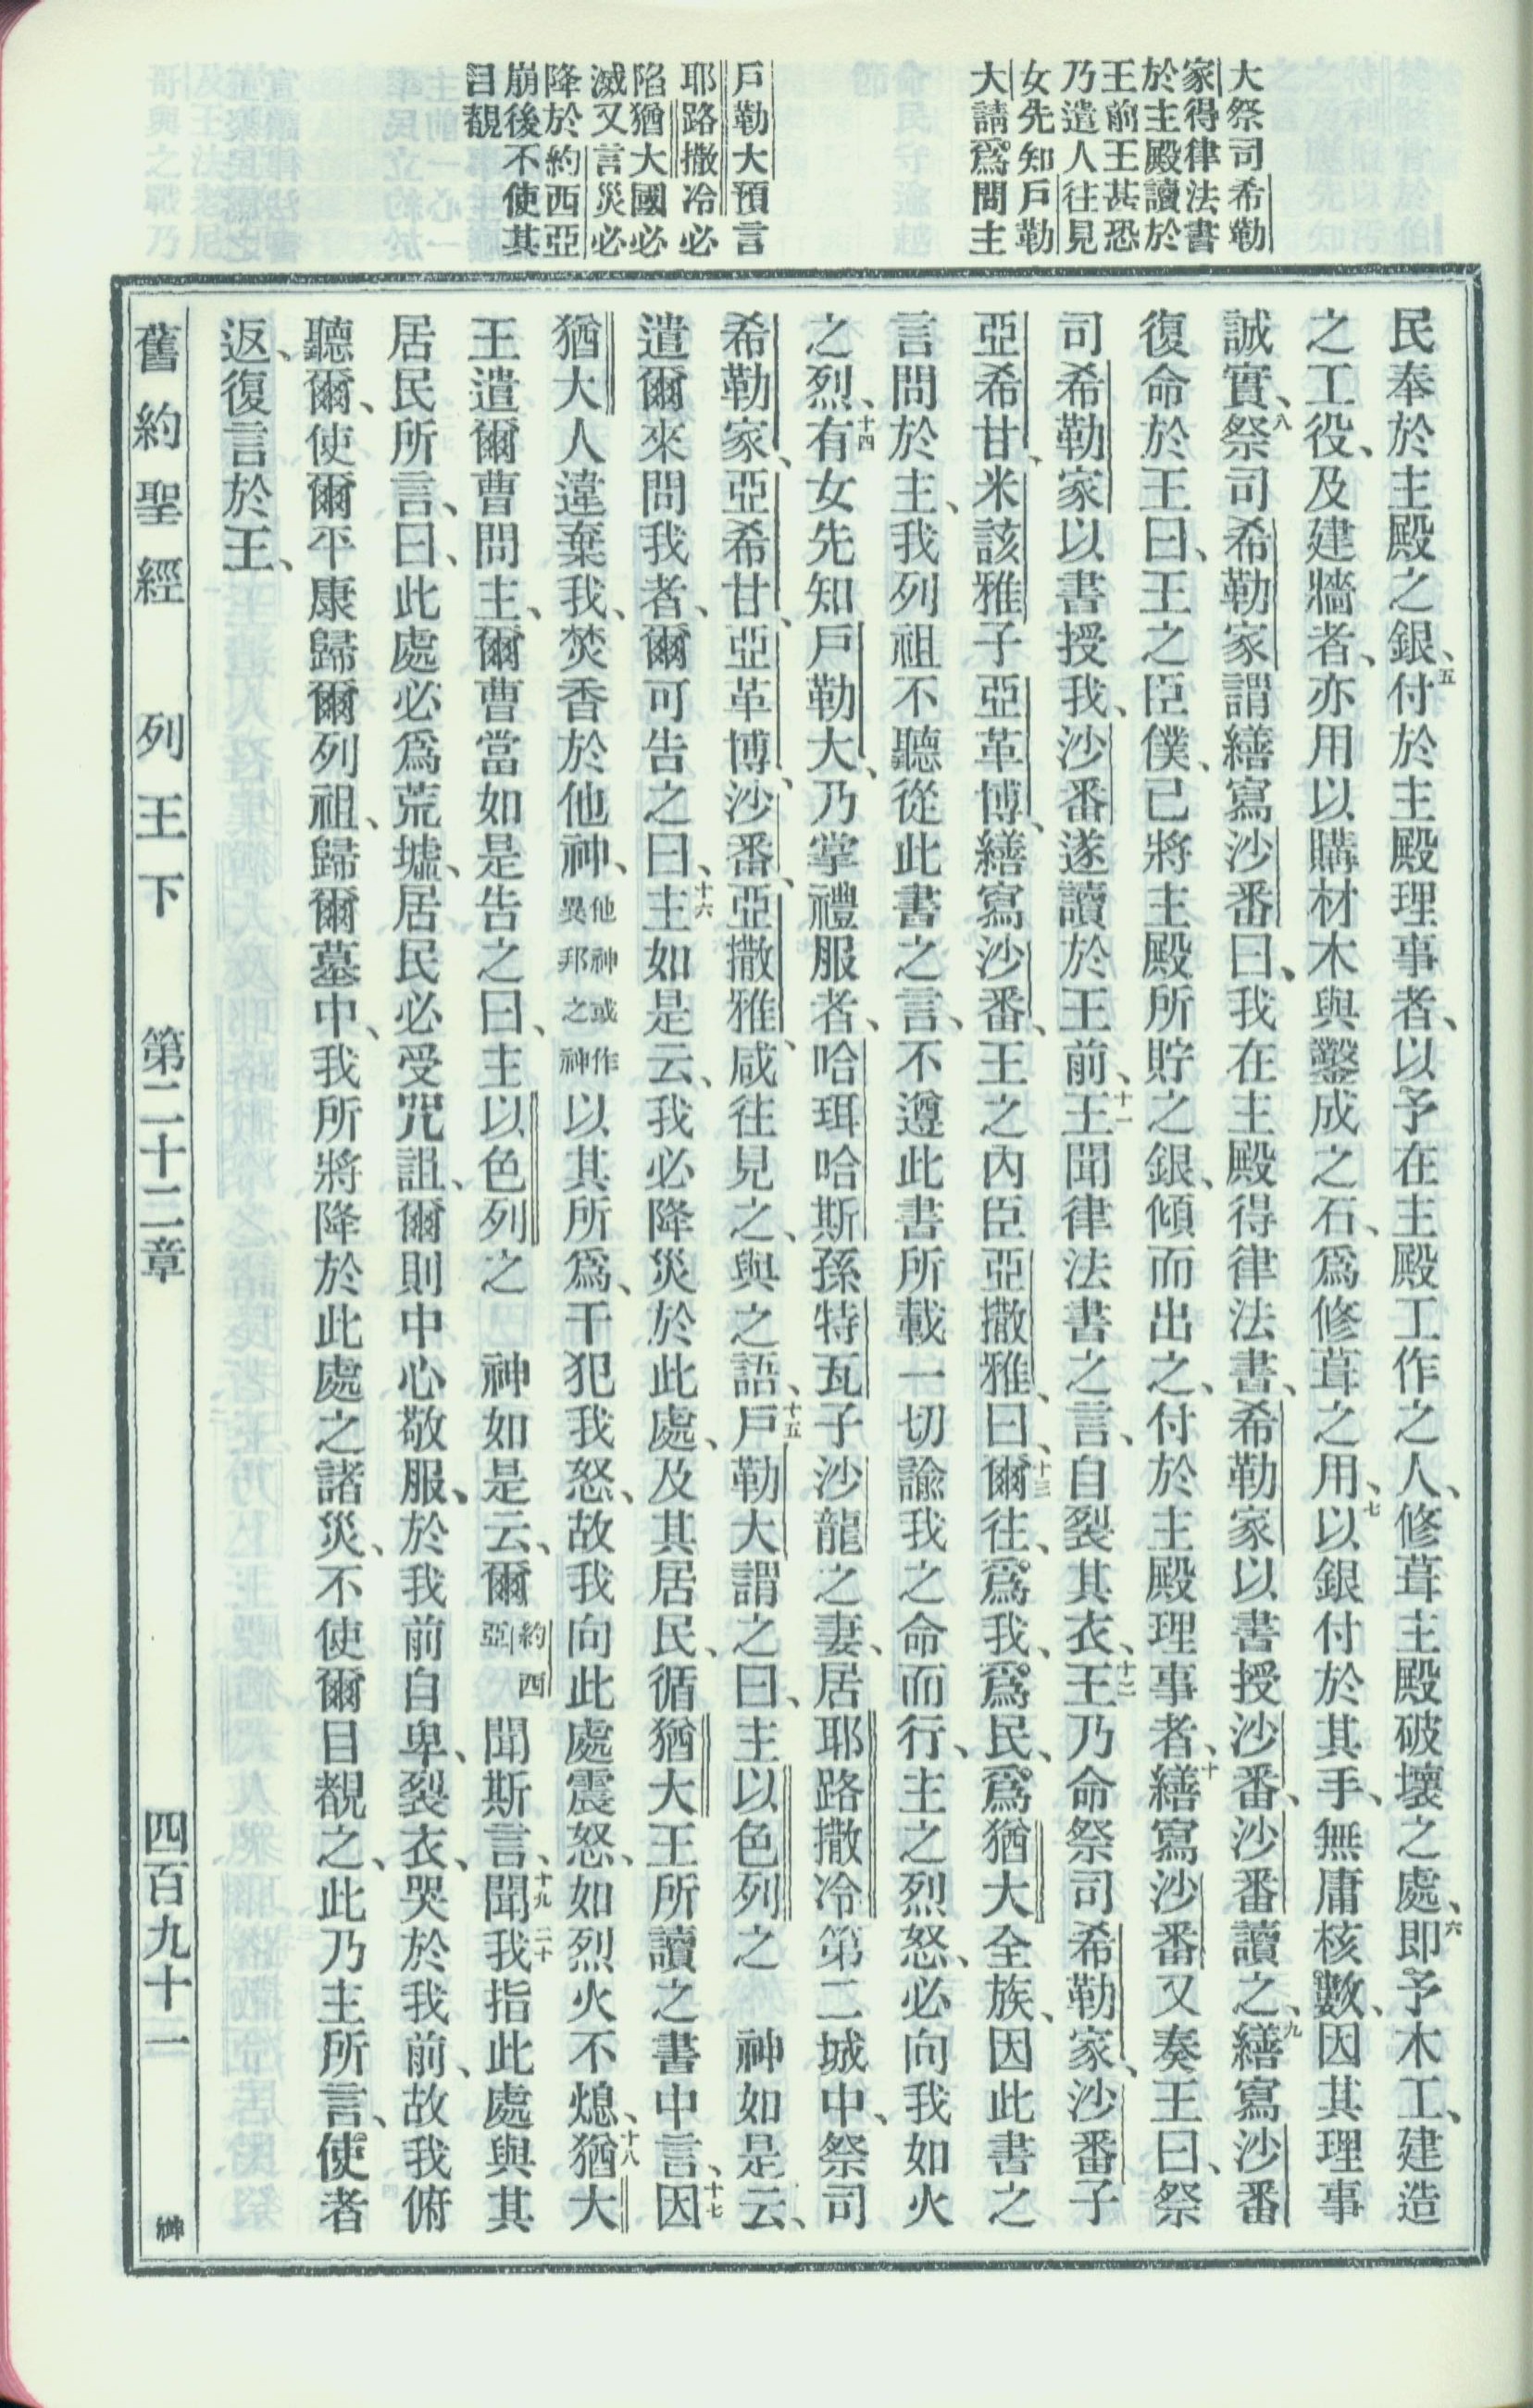 大祭司希勒
家得律法書
於主殿讀於
王前王甚恐
乃遣人往見
女先知戶勒
大請爲問主
戶勒大預言
耶路撒冷必
陷猶大國必
滅又言災必
降於約西亞
崩後不使其
目覩
民奉於主殿之銀、五付於主殿理事者、以予在主殿工作之人、修葺主殿破壞之處、六即予木工、建造
之工役、及建牆者、亦用以購材木與鑿成之石、爲修葺之用、七以銀付於其手、無庸核數、因其理事
誠實、八祭司希勒家謂繕寫沙番曰、我在主殿得律法書、希勒家以書授沙番、沙番讀之、九繕寫沙番
復命於王曰、王之臣僕、已將主殿所貯之銀、傾而出之、付於主殿理事者、十繕寫沙番又奏王曰、祭
司希勒家以書授我、沙番遂讀於王前、十一王聞律法書之言、自裂其衣、十二王乃命祭司希勒家、沙番子
亞希甘、米該雅子亞革博、繕寫沙番、王之內臣亞撒雅、曰、十三爾往、爲我、爲民、爲猶大全族、因此書之
言問於主、我列祖不聽從此書之言、不遵此書所載一切諭我之命而行、主之烈怒、必向我如火
之烈、十四有女先知戶勒大、乃掌禮服者、哈珥哈斯孫特瓦子沙龍之妻、居耶路撒冷第二城中、祭司
希勒家、亞希甘、亞革博、沙番、亞撒雅、咸往見之、與之語、十五戶勒大謂之曰、主以色列之 神如是云、
遣爾來問我者、爾可告之曰、十六主如是云、我必降災於此處、及其居民、循猶大王所讀之書中言、十七因
猶大人違棄我、焚香於他神、他神或作異邦之神以其所爲、干犯我怒、故我向此處震怒、如烈火不熄、十八猶大
王遣爾曹問主、爾曹當如是告之曰、主以色列之 神如是云、爾約西亞聞斯言、十九聞二十我指此處與其
居民所言、曰、此處必爲荒墟、居民必受咒詛、爾則中心敬服、於我前自卑、裂衣、哭於我前、故我俯
聽爾、使爾平康歸爾列祖、歸爾墓中、我所將降於此處之諸災、不使爾目覩之、此乃主所言、使者
返、復言於王、
舊約聖經 列王下 第二十二章 四百九十一